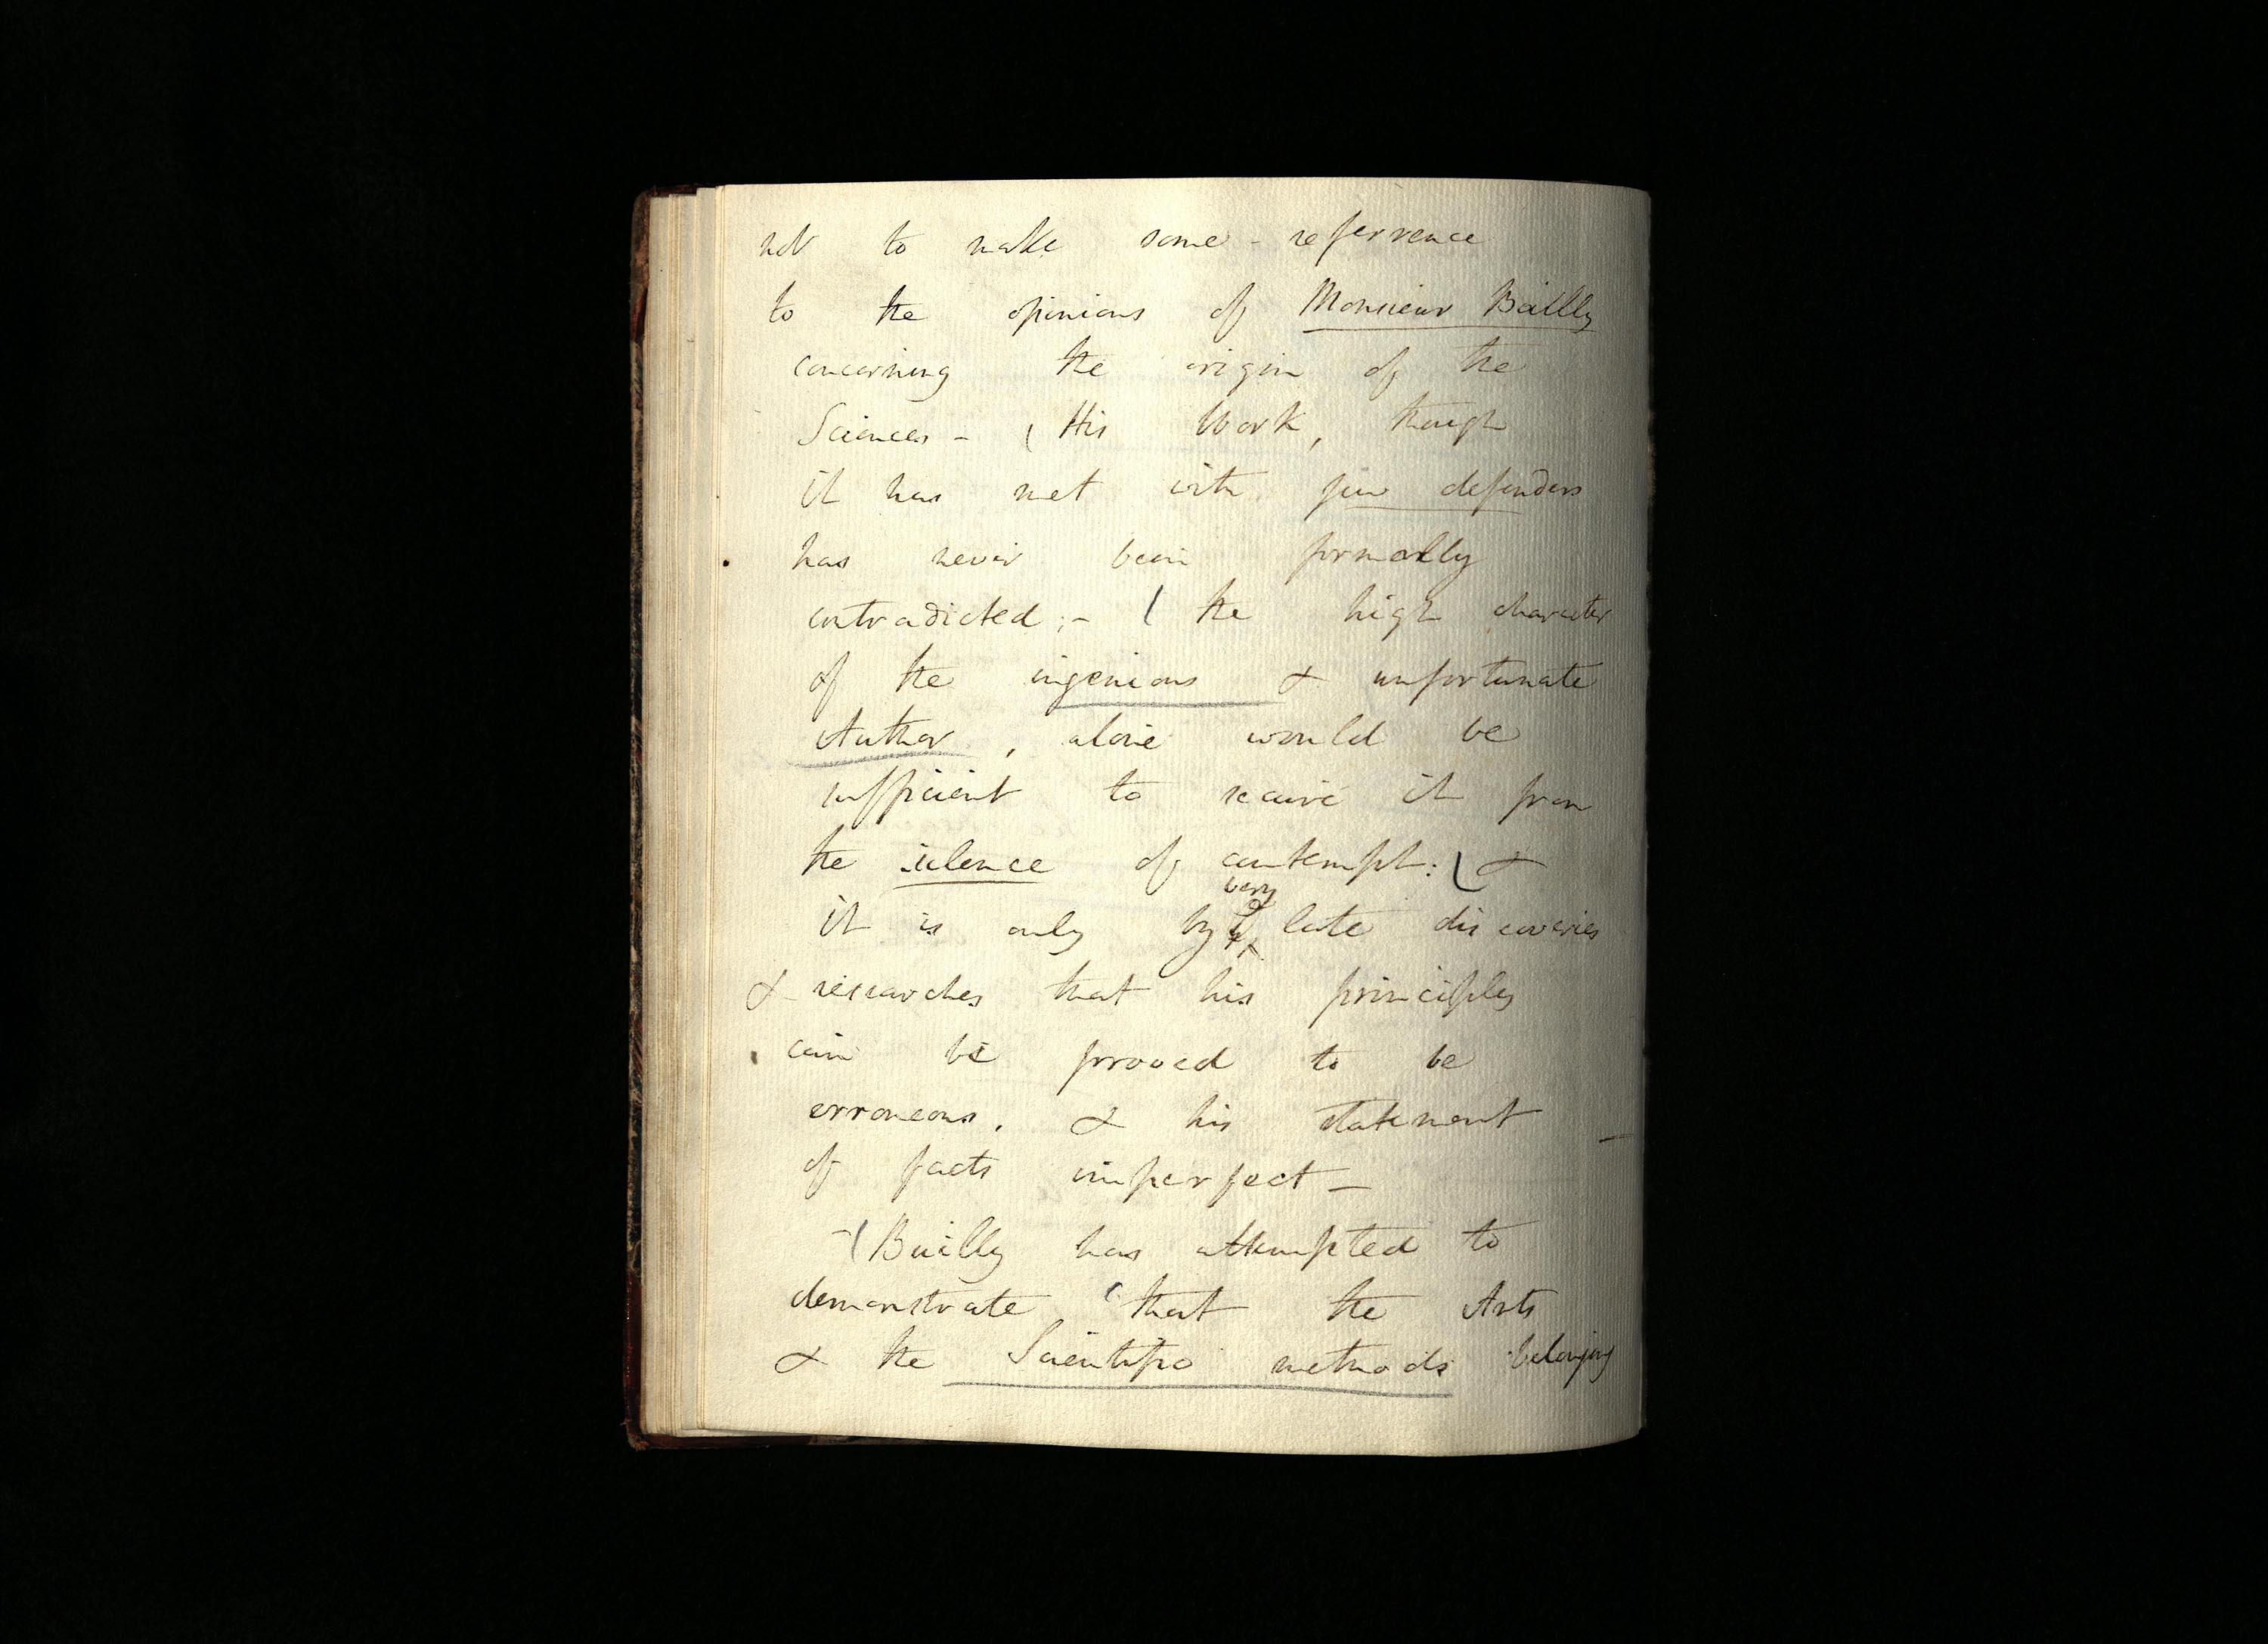 not to make some - referrence
to the opinions of Monsieur Bailly
concerning the origin of the
Sciences - (His Work, though
it has met with few defenders
has never been formally
contradicted; - ( the high character
of the ingenious & unfortunate
Author, alone would be
sufficient to secure it from
the silence of contempt: ( &
very
it is only by late discoveries
& researches that his principles
can be prooved to be
erroneous, & his statement
of facts imperfect -
- (Bailly has attempted to
demonstrate (that the Arts
& the Scientific methods belonging